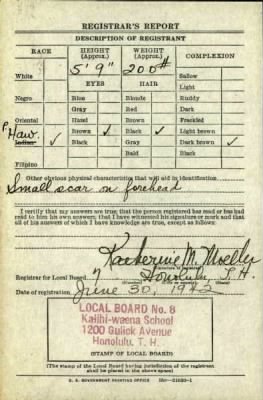 REGISTRAR'S REPORT
DESCRIPTION OF REGISTRANT
RACE HEIGHT (Approx.) WEIGHT (Approx.) COMPLEXION
5' 9" 200#
White Sallow
EYES HAIR Light
Negro Blue Blonde Ruddy
Gray Red Dark
Oriental Hazel Brown Freckled
P Haw. ✓ Brown ✓ Black ✓ Light brown
Indian Black Gray Dark brown ✓
Bald Black
Filipino
Other obvious physical characteristics that will aid in identification
Small scar on forehead
I certify that my answers are true; that the person registered has read or has had
read to him his own answers; that I have witnessed his signature or mark and that
all of his answers of which I have knowledge are true, except as follows:
Katherine M. Moeller
Registrar for Local Board 7 Honolulu T.H.
Date of registration June 30, 1942
LOCAL BOARD No. 8
Kalihi-waena School
1200 Gulick Avenue
Honolulu, T. H.
(STAMP OF LOCAL BOARD)
(The stamp of the Local Board having jurisdiction of the registrant
shall be placed in the above space)
U. S. GOVERNMENT PRINTING OFFICE 16—21630-1